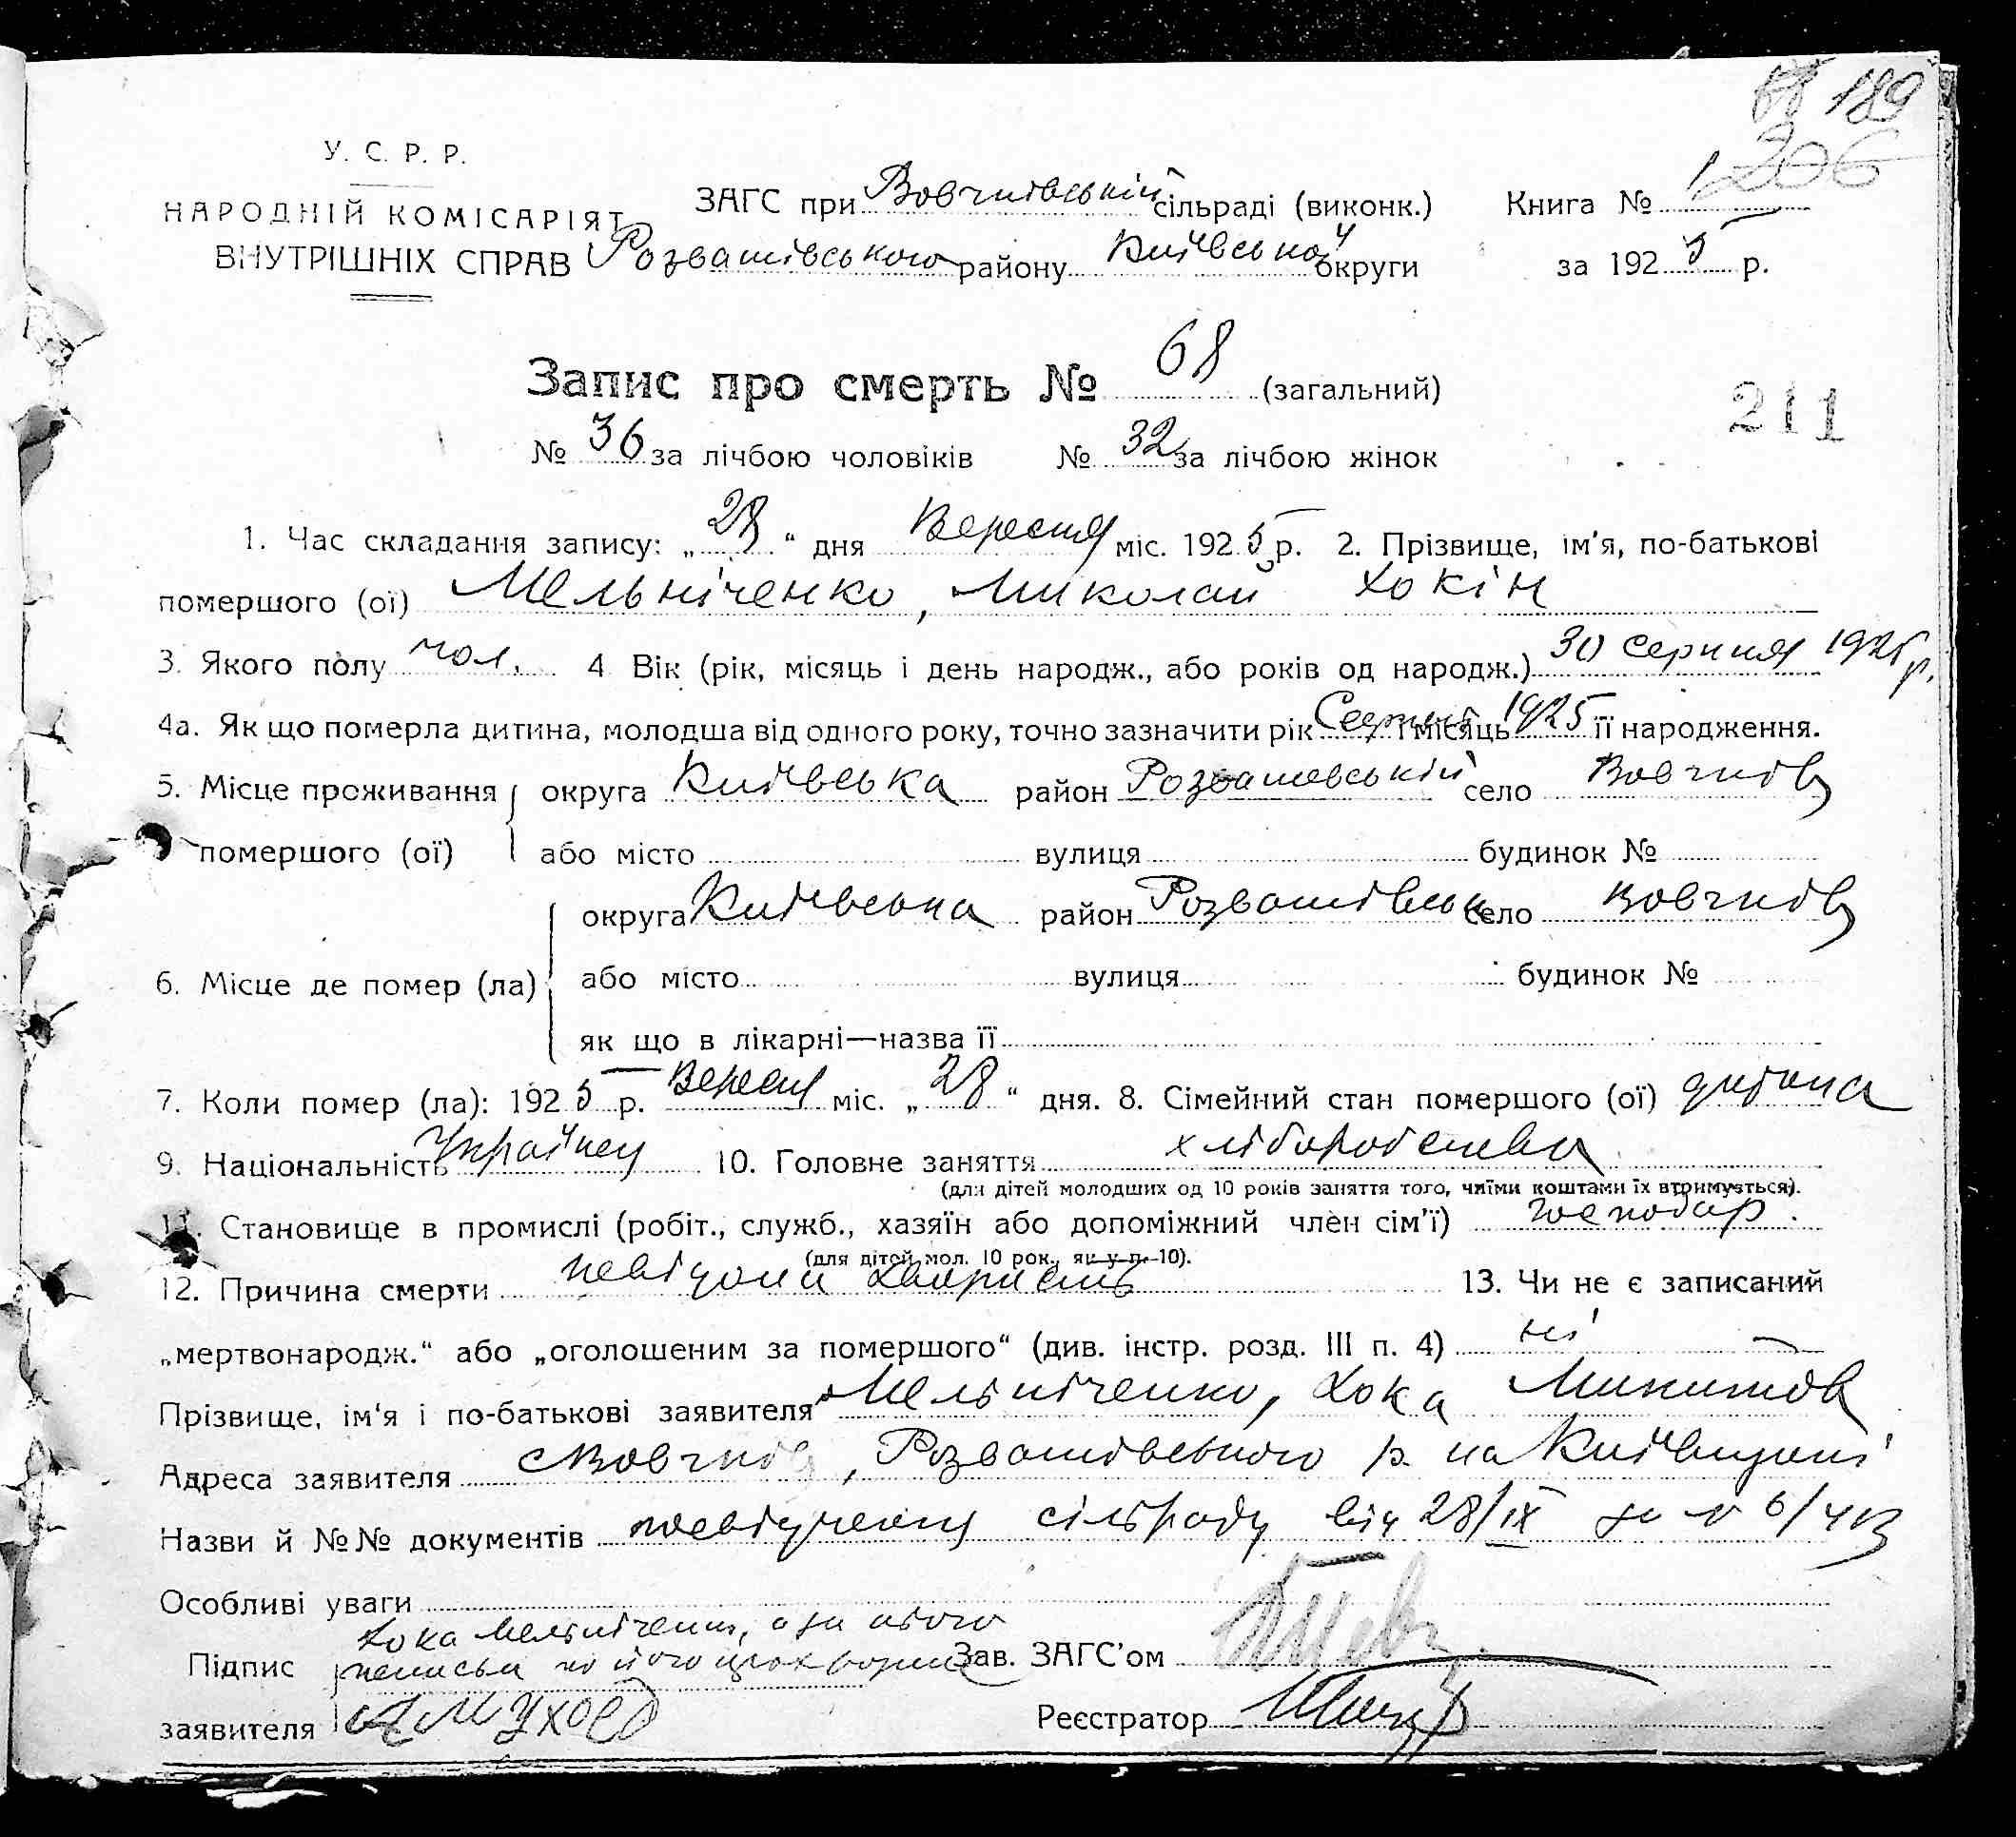 189
206
У. С. Р. Р.
НАРОДНІЙ КОМІСАРІЯТ
ВНУТРІШНІХ СПРАВ
ЗАГС при Вовчківській сільраді (виконк.) Книга № 1
Розважівського району Київської округи за 1925 р.
Запис про смерть № 68 (загальний)
211
№ 36 за лічбою чоловіків № 32 за лічбою жінок
1. Час складання запису: „28“ дня Вересня міс. 1925 р. 2. Прізвище, ім’я, по-батькові
помершого (ої) Мельніченко, Миколай Хокін
3. Якого полу чол. 4 Вік (рік, місяць і день народж., або років од народж.) 30 серпня 1925 р.
4а. Як що померла дитина, молодша від одного року, точно зазначити рік Серпень і місяць 1925 її народження.
5. Місце проживання округа Київська район Розважевській село Вовчків
помершого (ої) або місто вулиця будинок №
округа Київська район Розважівськ село Вовчків
6. Місце де помер (ла) або місто вулиця будинок №
як що в лікарні—назва її
7. Коли помер (ла): 1925 р. Вересня міс. „28“ дня. 8. Сімейний стан помершого (ої) дитина
9. Національність Українец 10. Головне заняття хліборобство
(для дітей молодших од 10 років заняття того, чиїми коштами їх втримується).
11. Становище в промислі (робіт., служб., хазяїн або допоміжний член сім’ї) господар.
(для дітей мол. 10 рок., як у п. 10).
12. Причина смерти невідома 13. Чи не є записаний
„мертвонародж.“ або „оголошеним за помершого“ (див. інстр. розд. III п. 4) ні
Прізвище, ім’я і по-батькові заявителя Мельніченко, Хока Микитов
Адреса заявителя с Вовчків, Розважівського р. на Київщині
Назви й №№ документів посвідчення сільради від 28/IX за №
Особливі уваги
Хока Мельніченко, а за нього
Підпис
заявителя А Мухоєд
Зав. ЗАГС’ом
Реєстратор